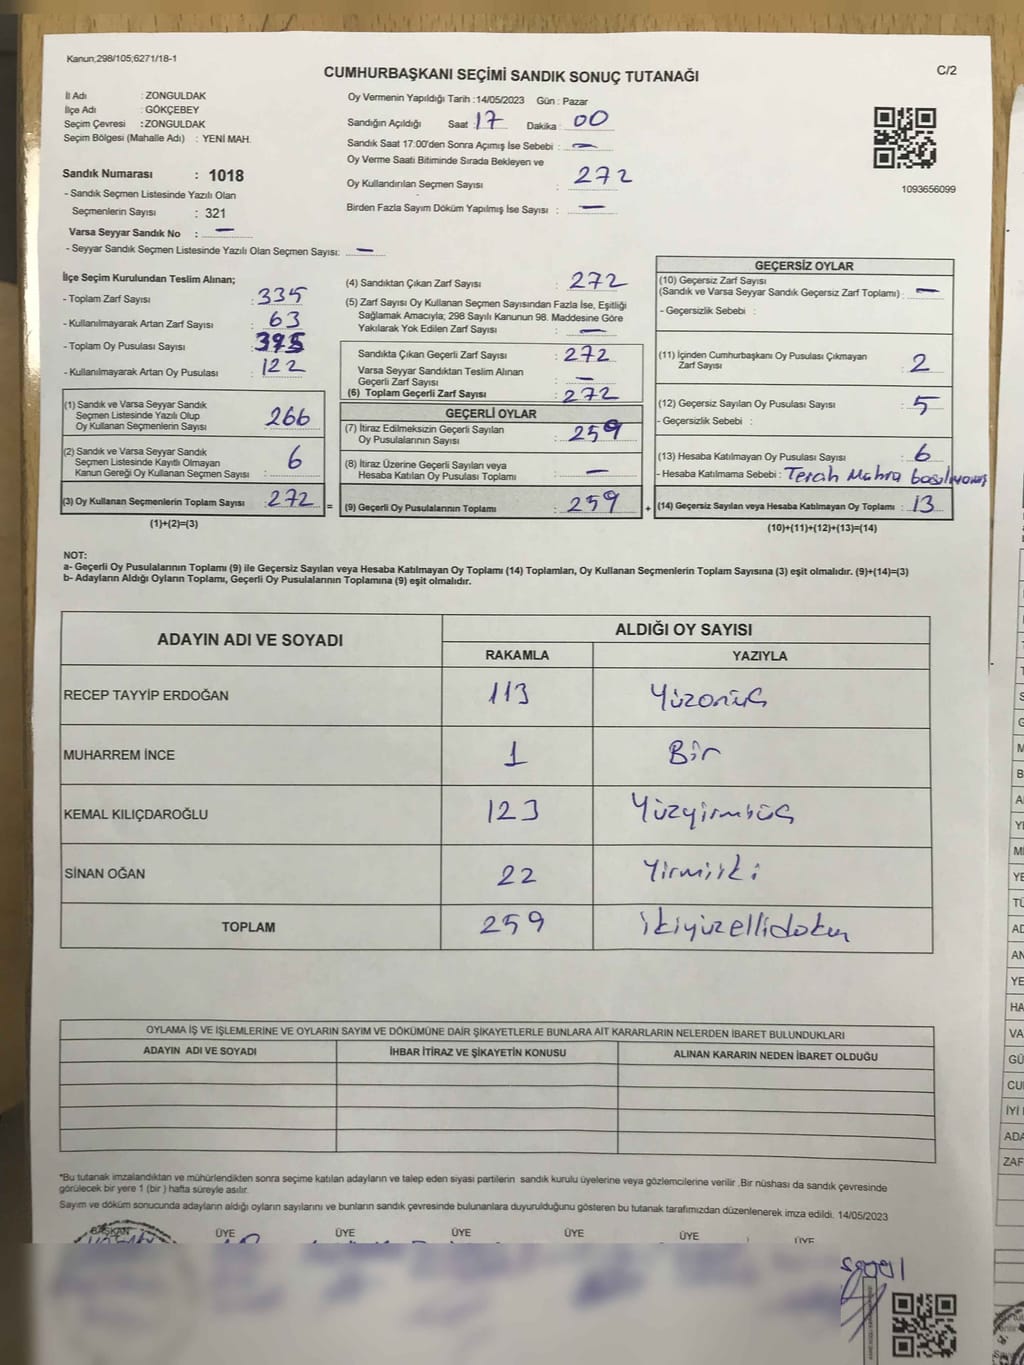 Kanun;298/105;6271/18-1
CUMHURBAŞKANI SEÇİMİ SANDIK SONUÇ TUTANAĞI
C/2
İl Adı : ZONGULDAK
İlçe Adı : GÖKÇEBEY
Seçim Çevresi : ZONGULDAK
Seçim Bölgesi (Mahalle Adı) : YENİ MAH.
Sandık Numarası : 1018
- Sandık Seçmen Listesinde Yazılı Olan
Seçmenlerin Sayısı : 321
Varsa Seyyar Sandık No : —
- Seyyar Sandık Seçmen Listesinde Yazılı Olan Seçmen Sayısı: —
Oy Vermenin Yapıldığı Tarih : 14/05/2023 Gün : Pazar
Sandığın Açıldığı Saat : 17 Dakika : 00
Sandık Saat 17:00'den Sonra Açımış İse Sebebi : —
Oy Verme Saati Bitiminde Sırada Bekleyen ve
Oy Kullandırılan Seçmen Sayısı : 272
Birden Fazla Sayım Döküm Yapılmış İse Sayısı : —
1093656099
İlçe Seçim Kurulundan Teslim Alınan;
- Toplam Zarf Sayısı : 335
- Kullanılmayarak Artan Zarf Sayısı : 63
- Toplam Oy Pusulası Sayısı :
- Kullanılmayarak Artan Oy Pusulası : 122
(1) Sandık ve Varsa Seyyar Sandık
Seçmen Listesinde Yazılı Olup
Oy Kullanan Seçmenlerin Sayısı : 266
(2) Sandık ve Varsa Seyyar Sandık
Seçmen Listesinde Kayıtlı Olmayan
Kanun Gereği Oy Kullanan Seçmen Sayısı : 6
(3) Oy Kullanan Seçmenlerin Toplam Sayısı : 272 =
(1)+(2)=(3)
(4) Sandıktan Çıkan Zarf Sayısı : 272
(5) Zarf Sayısı Oy Kullanan Seçmen Sayısından Fazla İse, Eşitliği
Sağlamak Amacıyla; 298 Sayılı Kanunun 98. Maddesine Göre
Yakılarak Yok Edilen Zarf Sayısı : —
Sandıkta Çıkan Geçerli Zarf Sayısı : 272
Varsa Seyyar Sandıktan Teslim Alınan
Geçerli Zarf Sayısı : —
(6) Toplam Geçerli Zarf Sayısı : 272
GEÇERLİ OYLAR
(7) İtiraz Edilmeksizin Geçerli Sayılan
Oy Pusulalarının Sayısı : 259
(8) İtiraz Üzerine Geçerli Sayılan veya
Hesaba Katılan Oy Pusulası Toplamı : —
(9) Geçerli Oy Pusulalarının Toplamı : 259 +
GEÇERSİZ OYLAR
(10) Geçersiz Zarf Sayısı
(Sandık ve Varsa Seyyar Sandık Geçersiz Zarf Toplamı) : —
- Geçersizlik Sebebi :
(11) İçinden Cumhurbaşkanı Oy Pusulası Çıkmayan
Zarf Sayısı : 2
(12) Geçersiz Sayılan Oy Pusulası Sayısı : 5
- Geçersizlik Sebebi :
(13) Hesaba Katılmayan Oy Pusulası Sayısı : 6
- Hesaba Katılmama Sebebi : Tercih
(14) Geçersiz Sayılan veya Hesaba Katılmayan Oy Toplamı : 13
(10)+(11)+(12)+(13)=(14)
NOT:
a- Geçerli Oy Pusulalarının Toplamı (9) ile Geçersiz Sayılan veya Hesaba Katılmayan Oy Toplamı (14) Toplamları, Oy Kullanan Seçmenlerin Toplam Sayısına (3) eşit olmalıdır. (9)+(14)=(3)
b- Adayların Aldığı Oyların Toplamı, Geçerli Oy Pusulalarının Toplamına (9) eşit olmalıdır.
ADAYIN ADI VE SOYADI
ALDIĞI OY SAYISI
RAKAMLA YAZIYLA
RECEP TAYYİP ERDOĞAN 113 Yüzonüç
MUHARREM İNCE 1 Bir
KEMAL KILIÇDAROĞLU 123 Yüzyirmiüç
SİNAN OĞAN 22 Yirmiiki
TOPLAM 259 ikiyüzellidokuz
OYLAMA İŞ VE İŞLEMLERİNE VE OYLARIN SAYIM VE DÖKÜMÜNE DAİR ŞİKAYETLERLE BUNLARA AİT KARARLARIN NELERDEN İBARET BULUNDUKLARI
ADAYIN ADI VE SOYADI İHBAR İTİRAZ VE ŞİKAYETİN KONUSU ALINAN KARARIN NEDEN İBARET OLDUĞU
*Bu tutanak imzalandıktan ve mühürlendikten sonra seçime katılan adayların ve talep eden siyasi partilerin sandık kurulu üyelerine veya gözlemcilerine verilir .Bir nüshası da sandık çevresinde
görülecek bir yere 1 (bir) hafta süreyle asılır.
Sayım ve döküm sonucunda adayların aldığı oyların sayılarını ve bunların sandık çevresinde bulunanlara duyurulduğunu gösteren bu tutanak tarafımızdan düzenlenerek imza edildi. 14/05/2023
BAŞKAN ÜYE ÜYE ÜYE ÜYE ÜYE ÜYE